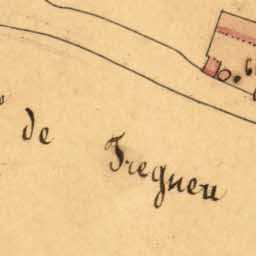 de Tregueu